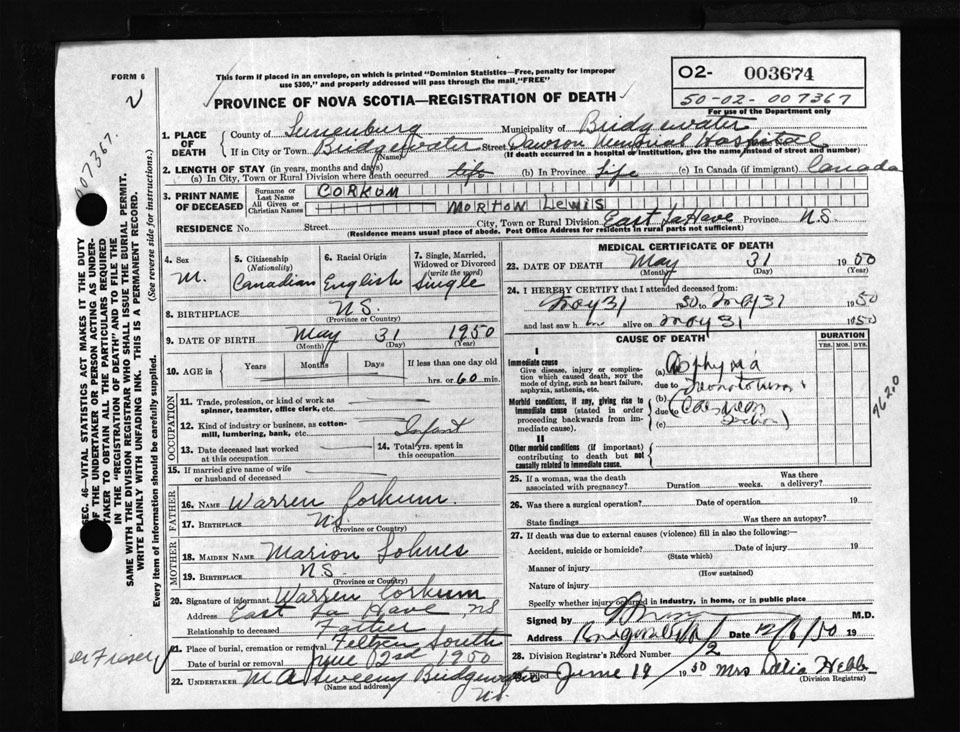 FORM 6
This form if placed in an envelope, on which is printed "Dominion Statistics—Free, penalty for improper
use $300," and properly addressed will pass through the mail "FREE"
PROVINCE OF NOVA SCOTIA—REGISTRATION OF DEATH
02- 003674
50-02-007367
For use of the Department only
2
007367.
SEC. 46—VITAL STATISTICS ACT MAKES IT THE DUTY
OF THE UNDERTAKER OR PERSON ACTING AS UNDER-
TAKER TO OBTAIN ALL THE PARTICULARS REQUIRED
IN THE "REGISTRATION OF DEATH" AND TO FILE THE
SAME WITH THE DIVISION REGISTRAR WHO SHALL ISSUE THE BURIAL PERMIT.
WRITE PLAINLY WITH UNFADING INK. THIS IS A PERMANENT RECORD.
Every item of information should be carefully supplied. (See reverse side for instructions.)
1. PLACE OF DEATH
County of Lunenburg Municipality of Bridgewater
If in City or Town Bridgewater Street Dawson Memorial Hospital
(Name) (If death occurred in a hospital or institution, give its name instead of street and number)
2. LENGTH OF STAY (in years, months and days)
(a) In City, Town or Rural Division where death occurred life (b) In Province Life (c) In Canada (if immigrant) Canada
3. PRINT NAME OF DECEASED
Surname or Last Name CORKUM
All Given or Christian Names MORTON LEWIS
RESIDENCE No. Street City, Town or Rural Division East LaHave Province N.S.
(Residence means usual place of abode. Post Office Address for residents in rural parts not sufficient)
4. Sex M.
5. Citizenship (Nationality) Canadian
6. Racial Origin English
7. Single, Married, Widowed or Divorced (write the word) Single
8. BIRTHPLACE N.S.
(Province or Country)
9. DATE OF BIRTH May 31 1950
(Month) (Day) (Year)
10. AGE in Years Months Days If less than one day old
hrs. or 60 min.
OCCUPATION
11. Trade, profession, or kind of work as
spinner, teamster, office clerk, etc.
12. Kind of industry or business, as cotton-
mill, lumbering, bank, etc. Infant
13. Date deceased last worked at this occupation
14. Total yrs. spent in this occupation
15. If married give name of wife
or husband of deceased
FATHER
16. Name Warren Corkum.
17. Birthplace N.S.
(Province or Country)
MOTHER
18. Maiden Name Marion Sohnes
19. Birthplace N.S.
(Province or Country)
20. Signature of informant Warren Corkum
Address East La Have NS
Relationship to deceased Father
21. Place of burial, cremation or removal Feltzen South
Date of burial or removal June 2nd 1950
22. UNDERTAKER M A Sweeny Bridgewater
(Name and address) N.S.
Dr Fraser
MEDICAL CERTIFICATE OF DEATH
23. DATE OF DEATH May 31 1950
(Month) (Day) (Year)
24. I HEREBY CERTIFY that I attended deceased from:
May 31 1950 to May 31 1950
and last saw h alive on May 31 1950
CAUSE OF DEATH DURATION
YRS. MOS. DYS.
I
Immediate cause
Give disease, injury or complica-
tion which caused death, not the
mode of dying, such as heart failure,
asphyxia, asthenia, etc.
(a) Asphyxia
due to
Morbid conditions, if any, giving rise to
immediate cause (stated in order
proceeding backwards from im-
mediate cause).
(b)
due to (Caesarean
(c) Section)
7620
II
Other morbid conditions (if important)
contributing to death but not
causally related to immediate cause.
25. If a woman, was the death
associated with pregnancy? Duration weeks. Was there a delivery?
26. Was there a surgical operation? Date of operation 19
State findings Was there an autopsy?
27. If death was due to external causes (violence) fill in also the following:—
Accident, suicide or homicide? Date of injury 19
(State which)
Manner of injury
(How sustained)
Nature of injury
Specify whether injury occurred in industry, in home, or in public place
Signed by M.D.
Address Bridgewater Date 12/6/50 19
28. Division Registrar's Record Number 2
Filed June 19 1950 Mrs Delia Hebb
(Division Registrar)